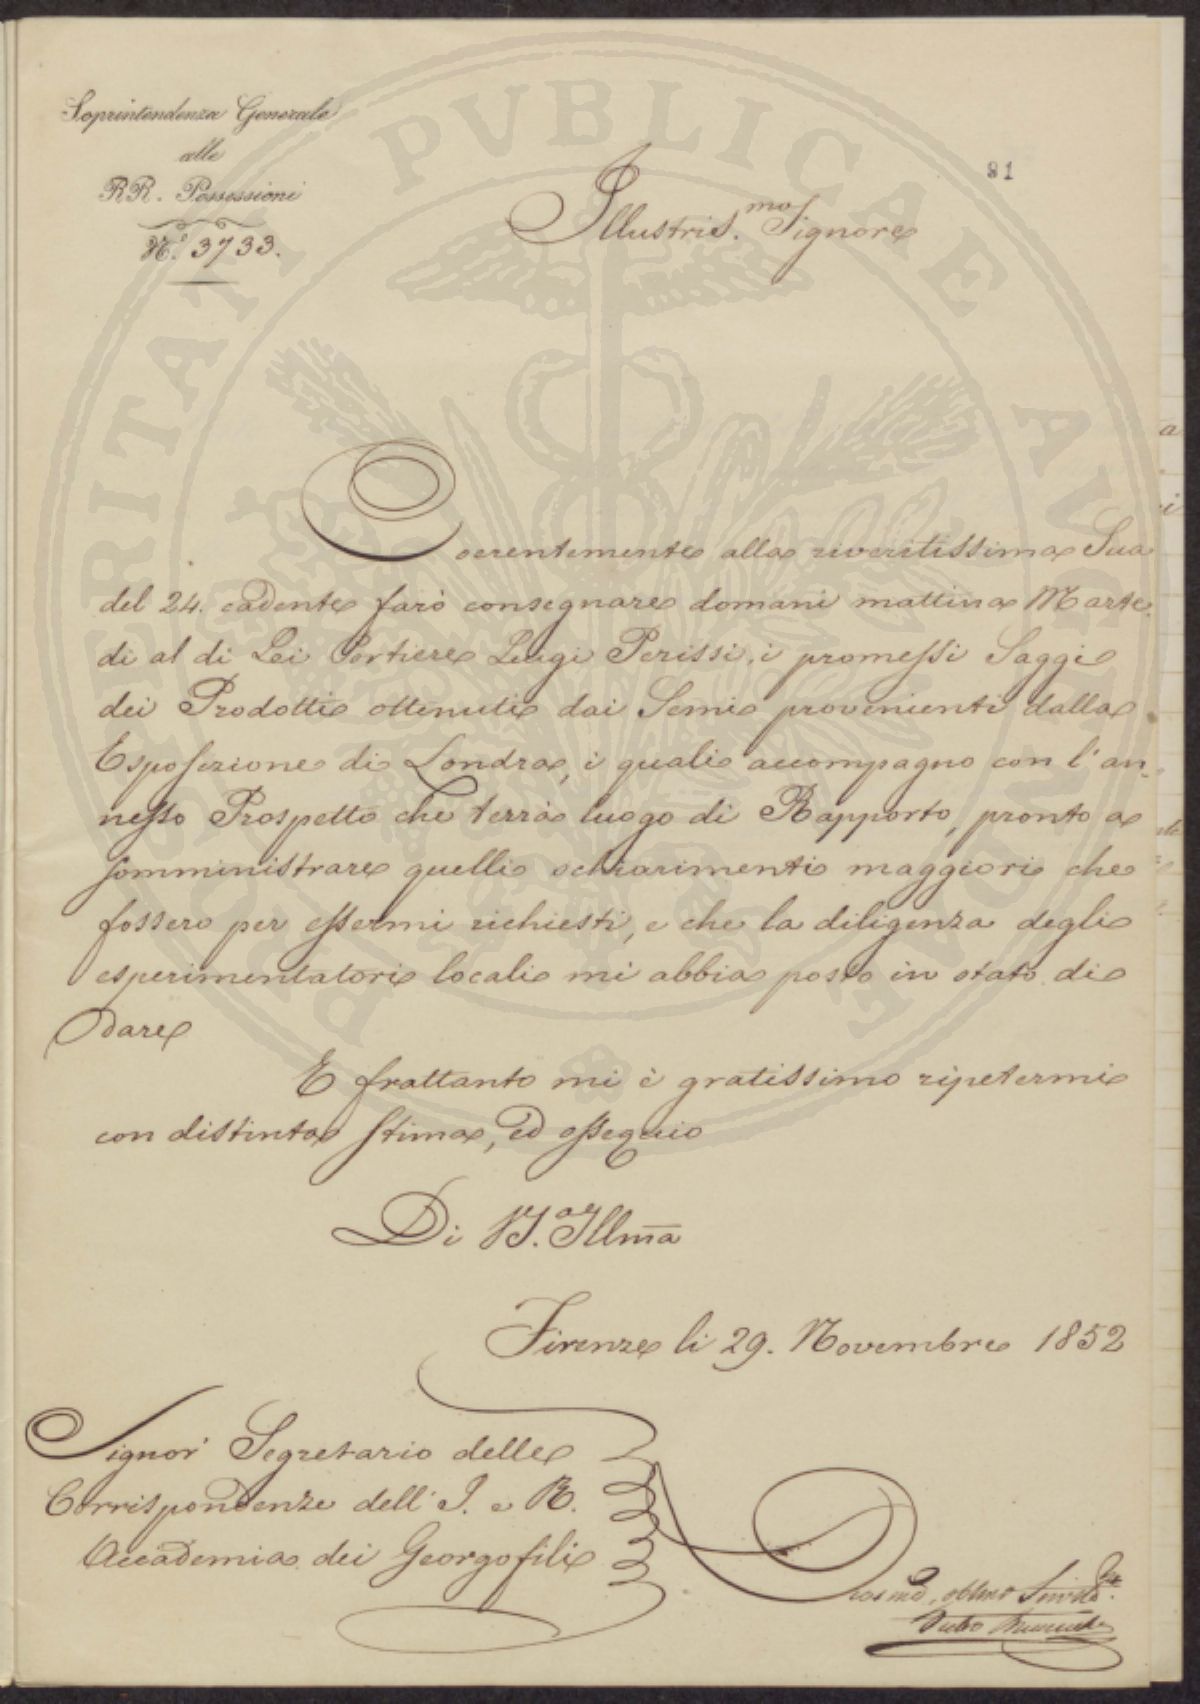 Soprintendenza Generale
alle
RR. Possessioni
N.° 3733.
91
Illustris.mo Signore
Coerentemente alla riveritissima Sua
del 24. cadente farò consegnare domani mattina Marte-
dì al di Lei Portiere Luigi Perissi, i promessi Saggi
dei Prodotti ottenuti dai Semi provenienti dalla
Esposizione di Londra, i quali accompagno con l'an-
nesso Prospetto che terrà luogo di Rapporto, pronto a
somministrare quelli schiarimenti maggiori che
fossero per essermi richiesti, e che la diligenza degli
esperimentatori locali mi abbia posto in stato di
dare
E frattanto mi è gratissimo ripetermi
con distinta stima, ed ossequio
Di V.S. Illma
Firenze li 29. Novembre 1852
Signor Segretario delle
Corrispondenze dell' I. e R.
Accademia dei Georgofili
PROSPERITATI PVBLICAE AVGENDAE